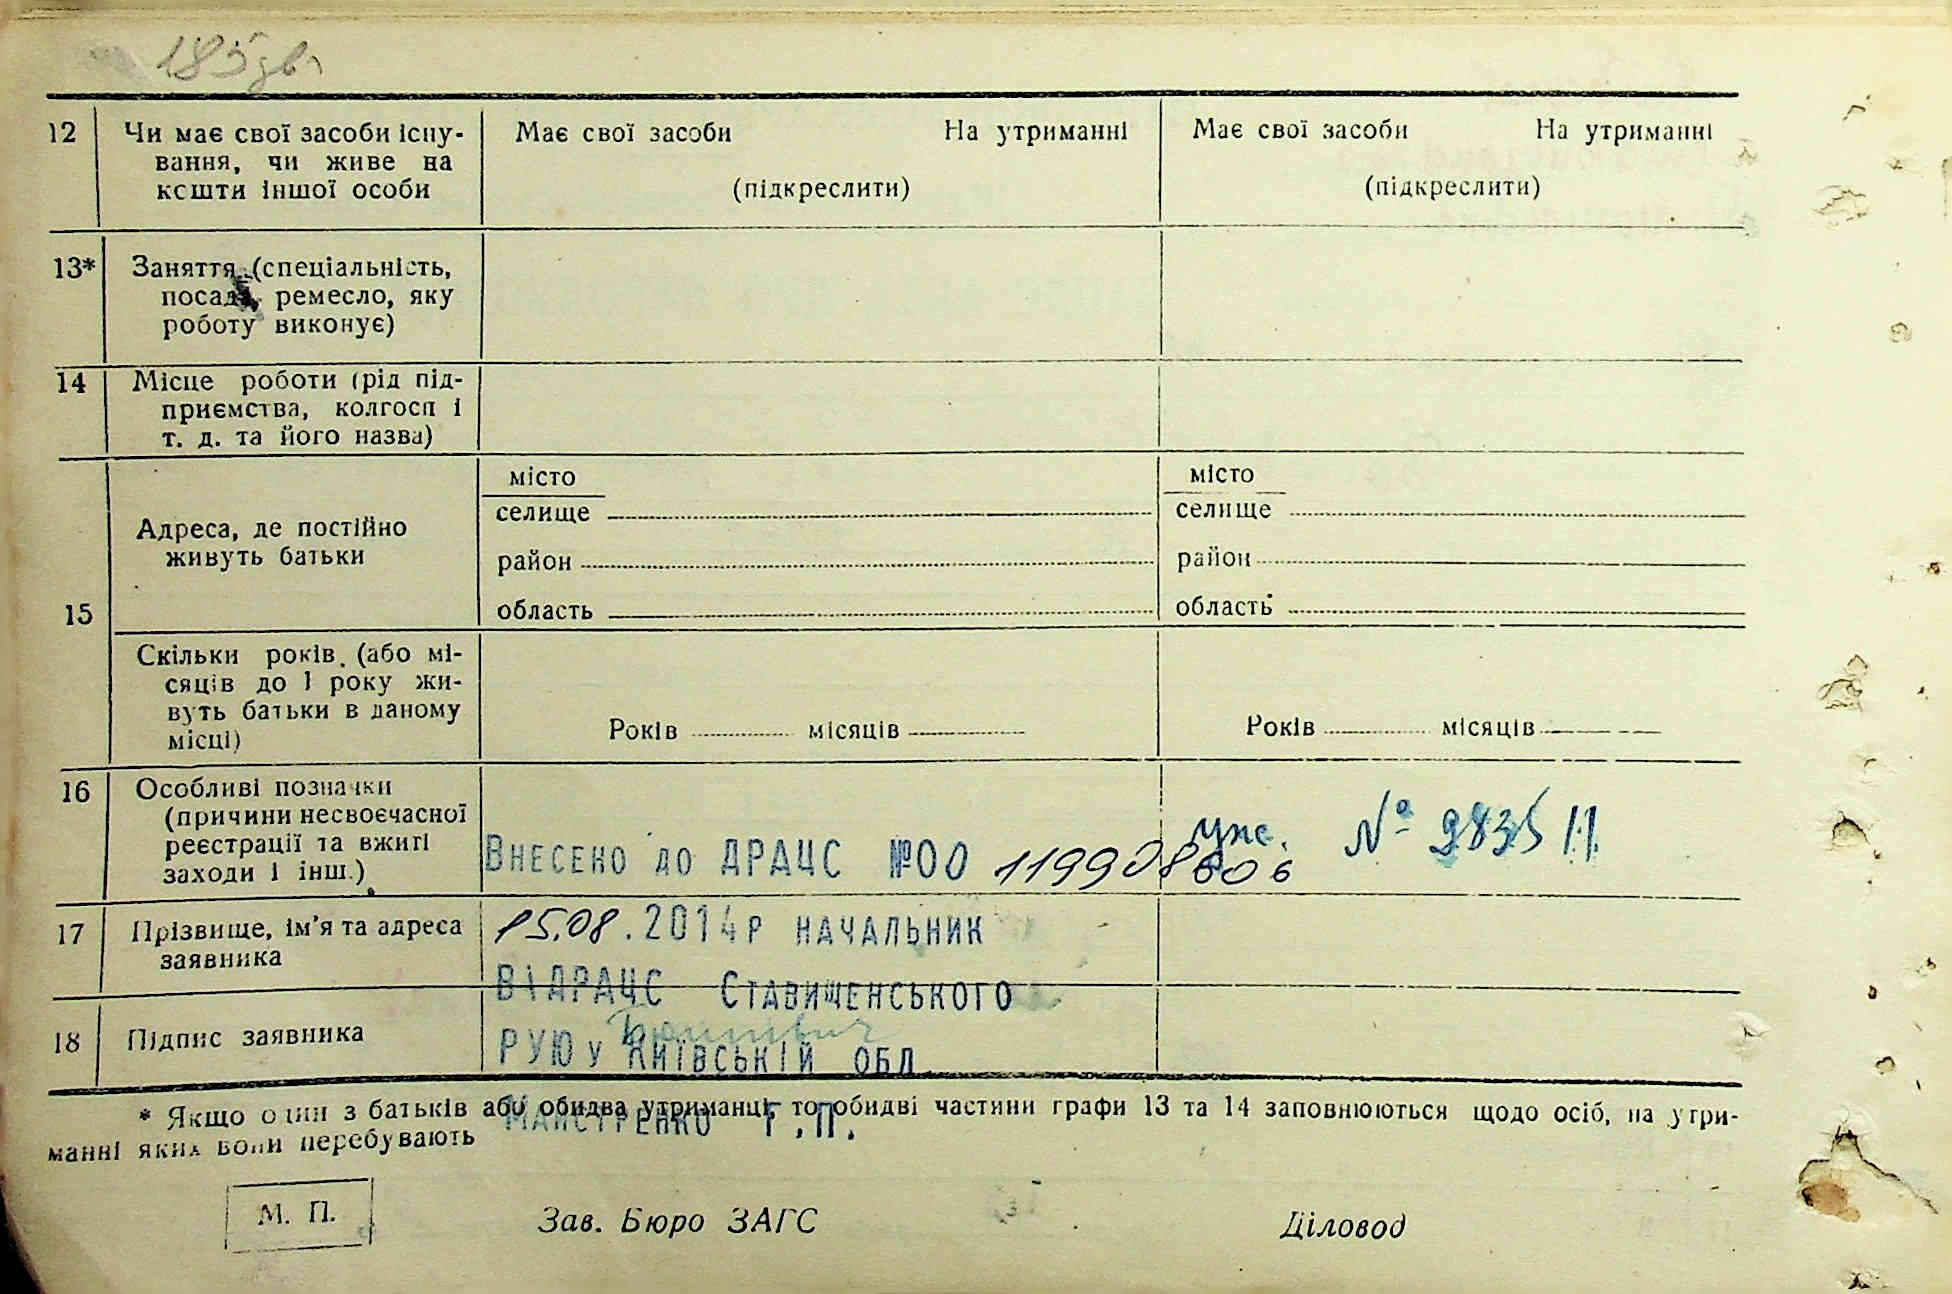 185 зв.
12 Чи має свої засоби існу-
вання, чи живе на
кошти іншої особи
Має свої засоби На утриманні
(підкреслити)
Має свої засоби На утриманні
(підкреслити)
13* Заняття (спеціальність,
посада, ремесло, яку
роботу виконує)
14 Місце роботи (рід під-
приємства, колгосп і
т. д. та його назва)
15
Адреса, де постійно
живуть батьки
місто
селище
район
область
місто
селище
район
область
Скільки років (або мі-
сяців до 1 року жи-
вуть батьки в даному
місці)
Років місяців
Років місяців
16 Особливі позначки
(причини несвоєчасної
реєстрації та вжиті
заходи і інш.)
Внесено до ДРАЦС №00 119908606
№ 9835
17 Прізвище, ім'я та адреса
заявника
15.08.2014р начальник
ВДРАЦС Ставищенського
18 Підпис заявника
РУЮ у Київській обл
Майстренко Г.П.
* Якщо один з батьків або обидва утриманці, то обидві частини графи 13 та 14 заповнюються щодо осіб, на утри-
манні яких вони перебувають
М. П.
Зав. Бюро ЗАГС
Діловод